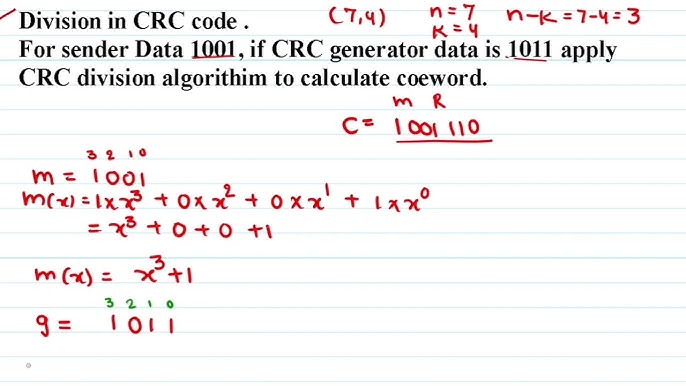 Division in CRC code . (7,4) n = 7 n-k = 7-4 = 3
k = 4
For sender Data 1001, if CRC generator data is 1011 apply
CRC division algorithim to calculate coeword.
m R
C = 1001 110
3 2 1 0
m = 1001
m(x) = 1×x³ + 0×x² + 0×x¹ + 1×x⁰
= x³ + 0 + 0 + 1
m(x) = x³+1
3 2 1 0
g = 1 0 1 1